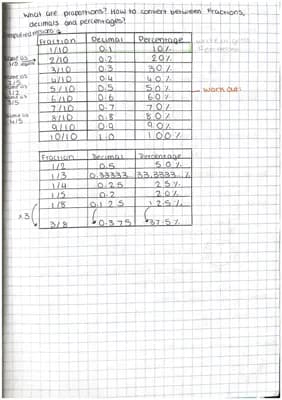 What are proportions? How to convert between fractions,
decimals and percentages?
Fraction Decimal Percentage
1/10 0.1 10%
same as 2/10 0.2 20%
3/10 0.3 30%
same as 4/10 0.4 40%
5/10 0.5 50%
same as 6/10 0.6 60%
3/5 7/10 0.7 70%
same as 8/10 0.8 80%
4/5 9/10 0.9 90%
10/10 1.0 100%
Fraction Decimal Percentage
1/2 0.5 50%
1/3 0.33333 33.3333%
1/4 0.25 25%
1/5 0.2 20%
1/8 0.125 12.5%
x3
3/8 0.375 37.5%